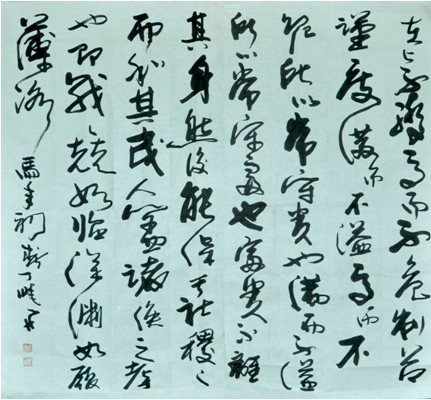 在上不驕高而不危制節
謹度滿而不溢高而不
危所以常守貴也滿而不溢
所以常守富也富貴不離
其身然後能保其社稷
而和其民人蓋諸侯之孝
也戰兢如臨深淵如履
薄冰
馬年初